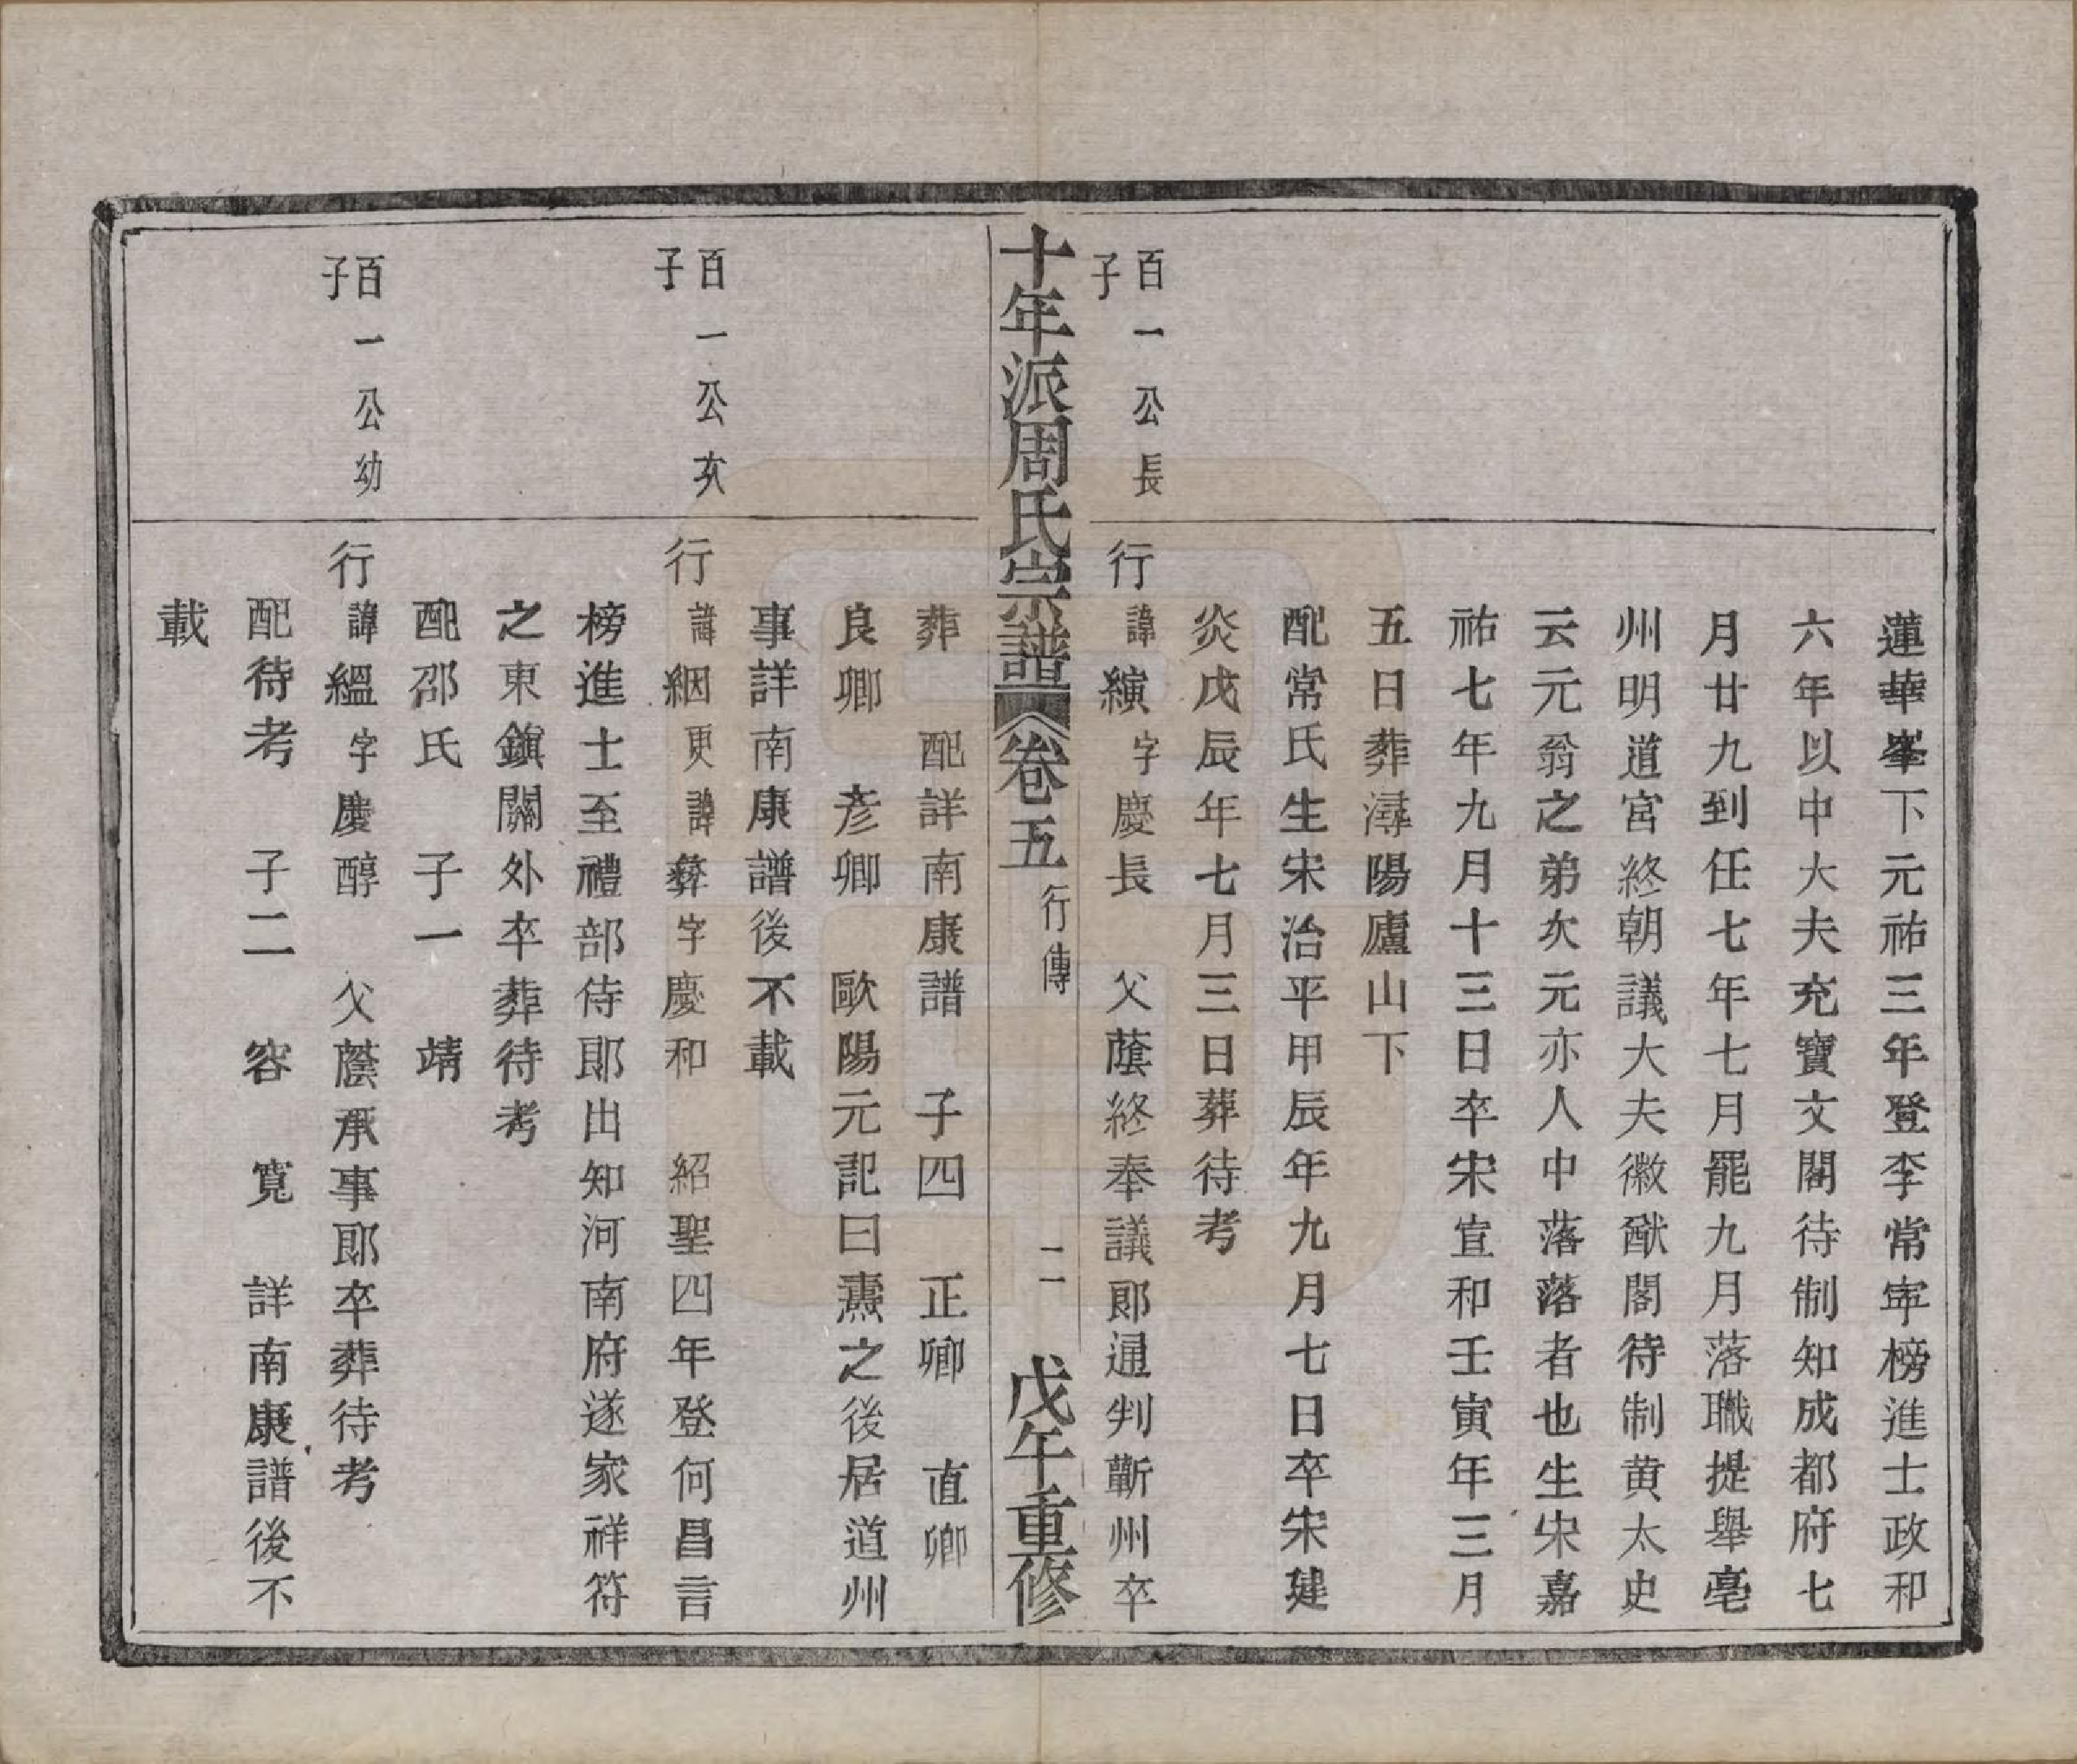 蓮華峯下元祐三年登李常寧榜進士政和
六年以中大夫充寶文閣待制知成都府七
月廿九到任七年七月罷九月落職提舉亳
州明道宮終朝議大夫徽猷閣待制黄太史
云元翁之弟次元亦人中落落者也生宋嘉
祐七年九月十三日卒宋宣和壬寅年三月
五日葬潯陽廬山下
配常氏生宋治平甲辰年九月七日卒宋建
炎戊辰年七月三日葬待考
百一公長子
行諱縯字慶長 父蔭終奉議郎通判蘄州卒
十年派周氏宗譜 卷五 行傳 二 戊午重修
葬 配詳南康譜 子四 正卿 直卿
良卿 彥卿 歐陽元記曰燾之後居道州
事詳南康譜後不載
百一公次子
行諱絪更諱彝字慶和 紹聖四年登何昌言
榜進士至禮部侍郎出知河南府遂家祥符
之東鎮關外卒葬待考
配邵氏 子一 靖
百一公幼子
行諱縕字慶醇 父蔭承事郎卒葬待考
配待考 子二 容 寬 詳南康譜後不
載